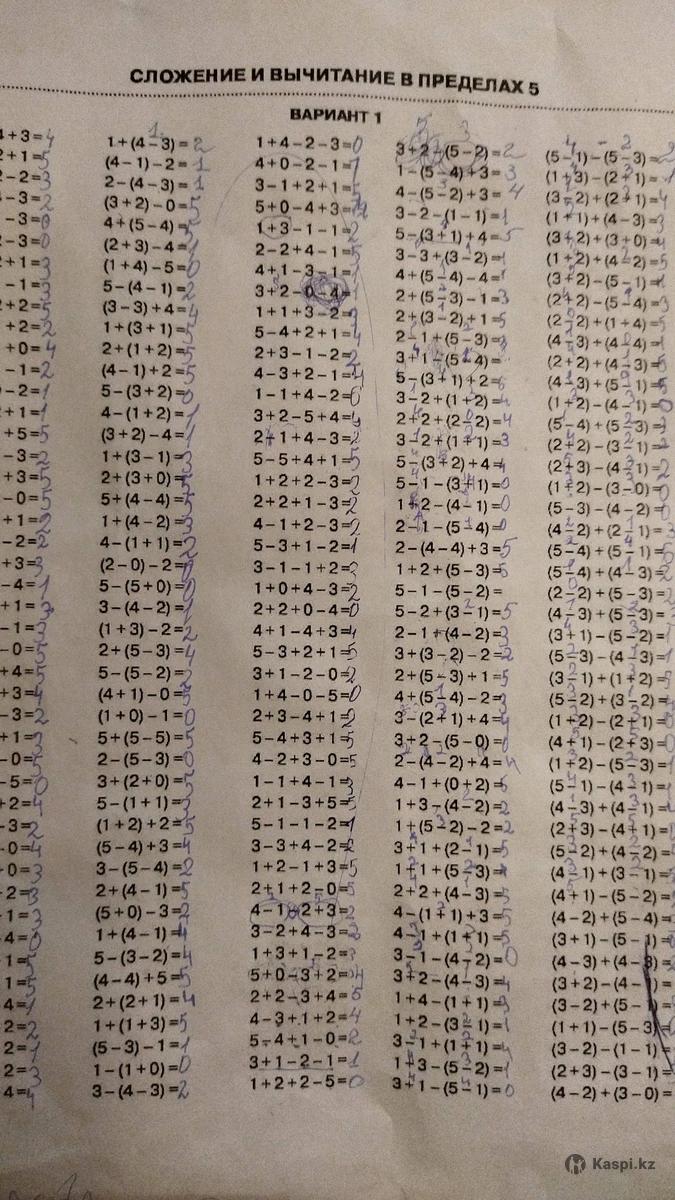 СЛОЖЕНИЕ И ВЫЧИТАНИЕ В ПРЕДЕЛАХ 5
ВАРИАНТ 1
4+3=4
2+1=5
2-2=3
-3=2
-3=0
2-3=0
2+1=3
-1=3
2+2=5
+2=2
+0=4
-1=2
-2=1
+1=1
+5=5
-3=2
+3=5
-0=5
+1=2
-2=2
+3=3
-4=1
+1=3
-1=3
-0=5
+4=5
+3=4
-3=2
+1=3
-0=5
-5=0
+2=4
-3=2
-0=4
+0=3
-2=3
-1=3
4=0
1=5
1=5
4=1
2=2
2=1
2=3
4=4
1+(4-3)=2
(4-1)-2=1
2-(4-3)=1
(3+2)-0=5
4+(5-4)=5
(2+3)-4=1
(1+4)-5=0
5-(4-1)=2
(3-3)+4=4
1+(3+1)=5
2+(1+2)=5
(4-1)+2=5
5-(3+2)=0
4-(1+2)=1
(3+2)-4=1
1+(3-1)=3
2+(3+0)=5
5+(4-4)=5
1+(4-2)=3
4-(1+1)=2
(2-0)-2=0
5-(5+0)=0
3-(4-2)=1
(1+3)-2=2
2+(5-3)=4
5-(5-2)=2
(4+1)-0=5
(1+0)-1=0
5+(5-5)=5
2-(5-3)=0
3+(2+0)=5
5-(1+1)=3
(1+2)+2=5
(5-4)+3=4
3-(5-4)=2
2+(4-1)=5
(5+0)-3=2
1+(4-1)=4
5-(3-2)=4
(4-4)+5=5
2+(2+1)=4
1+(1+3)=5
(5-3)-1=1
1-(1+0)=0
3-(4-3)=2
1+4-2-3=0
4+0-2-1=1
3-1+2+1=5
5+0-4+3=4
1+3-1-1=2
2-2+4-1=5
4+1-3-1=1
3+2-0-4=1
1+1+3-2=3
5-4+2+1=4
2+3-1-2=2
4-3+2-1=4
1-1+4-2=0
3+2-5+4=4
2+1+4-3=2
5-5+4+1=5
1+2+2-3=2
2+2+1-3=2
4-1+2-3=2
5-3+1-2=1
3-1-1+2=3
1+0+4-3=2
2+2+0-4=0
4+1-4+3=4
5-3+2+1=5
3+1-2-0=2
1+4-0-5=0
2+3-4+1=2
5-4+3+1=5
4-2+3-0=5
1-1+4-1=3
2+1-3+5=5
5-1-1-2=1
3-3+4-2=2
1+2-1+3=5
2+1+2-0=5
4-1-2+3=2
3-2+4-3=2
1+3+1-2=3
5+0-3+2=4
2+2-3+4=5
4-3+1+2=4
5-4+1-0=2
3+1-2-1=1
1+2+2-5=0
3+2-(5-2)=2
1-(5-4)+3=3
4-(5-2)+3=4
3-2-(1-1)=1
5-(3+1)+4=5
3-3+(3-2)=1
4+(5-4)-4=1
2+(5-3)-1=3
2+(3-2)+1=5
2-1+(5-3)=3
3+1-(5-4)=
5-(3+1)+2=
3-2+(1+2)=4
2+2+(2-2)=4
3-2+(1+1)=3
5-(3+2)+4=4
5-1-(3+1)=0
1+2-(4-1)=0
2-1-(5-4)=0
2-(4-4)+3=5
1+2+(5-3)=5
5-1-(5-2)=
5-2+(3-1)=5
2-1+(4-2)=3
3+(3-2)-2=2
2+(5-3)+1=5
4+(5-4)-2=3
3-(2+1)+4=4
3+2-(5-0)=0
2-(4-2)+4=4
4-1+(0+2)=5
1+3-(4-2)=2
1+(5-2)-2=2
3+1+(2-1)=5
1+1+(5-3)=4
2+2+(4-3)=5
4-(1+1)+3=5
4-1+(1+1)=5
3-1-(4-2)=0
3+2-(4-3)=4
1+4-(1+1)=3
1+2-(3-1)=1
3-1+(1+1)=4
1+3-(5-2)=1
3+1-(5-1)=0
(5-1)-(5-3)=2
(1+3)-(2+1)=1
(3-2)+(2+1)=4
(1+1)+(4-3)=3
(3+2)+(3+0)=
(1+2)+(4-2)=5
(3+2)-(5-1)=1
(2+2)-(5-4)=3
(2-2)+(1+4)=5
(4-3)+(4-4)=1
(2+2)+(4-3)=5
(4-3)+(5-1)=5
(1+2)-(4-1)=0
(5-4)+(5-3)=3
(2+2)-(3-1)=2
(2+3)-(4-1)=2
(1+2)-(3-0)=0
(5-3)-(4-2)=0
(4-2)+(2-1)=3
(5-4)+(5-1)=5
(5-4)+(4-3)=2
(2-2)+(5-3)=2
(4-3)+(5-3)=
(3+1)-(5-2)=1
(5-3)-(4-3)=1
(3-1)+(1+2)=5
(5-2)+(3-2)=4
(1+2)-(2+1)=0
(4+1)-(2+3)=0
(1+2)-(5-3)=1
(5-1)-(4-1)=1
(4-3)+(4-1)=4
(2+3)-(4+1)=
(5-2)+(4-2)=5
(4-1)+(3-1)=
(4+1)-(5-2)=
(4-2)+(5-4)=
(3+1)-(5-1)=
(4-3)+(4-3)=
(3+2)-(4-1)=
(3-2)+(5-1)=
(1+1)-(5-3)=
(3-2)-(1-1)=
(2+3)-(3-1)=
(4-2)+(3-0)=
Kaspi.kz